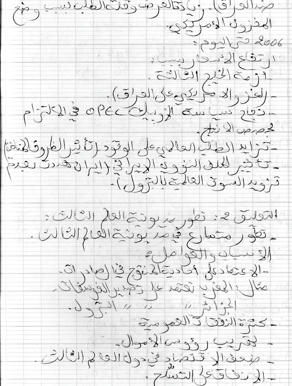 ضد العراق). زيادة العرض وقلة الطلب بسبب وضع
المخزون الأمريكي.
2006 حتى اليوم:
ارتفاع الأسعار بسبب:
- أزمة الخليج الثالثة.
- (الغزو الأمريكي على العراق).
- نجاح سياسة الأوبيك OPEC في الالتزام
بحصص الإنتاج.
- تزايد الطلب العالمي على الوقود (تأثير الظروف المناخية)
- تأثير الملف النووي الإيراني (إيران هددت بعدم
تزويد السوق العالمية بالبترول).
التعليق 2: تطور مديونية العالم الثالث:
- تطور متسارع في مديونية العالم الثالث.
الأسباب والعوامل:
- الاعتماد على أحادية المنتوج في الصادرات.
مثال: المغرب تعتمد على تصدير الفوسفات.
الجزائر " " " البترول.
- كثرة النفقات العمومية
- تهريب رؤوس الأموال.
- ضعف الاقتصاد في دول العالم الثالث.
- الإنفاق على التسلح.